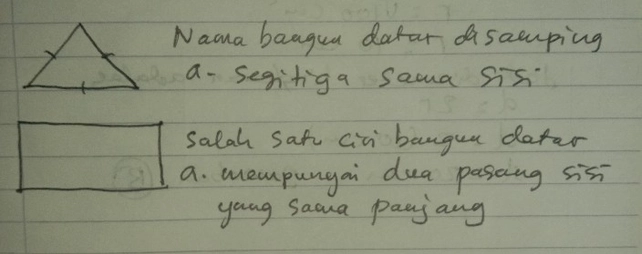 Nama bangun datar disamping
a. Segitiga sama sisi
Salah satu ciri bangun datar
a. mempunyai dua pasang sisi
yang sama panjang